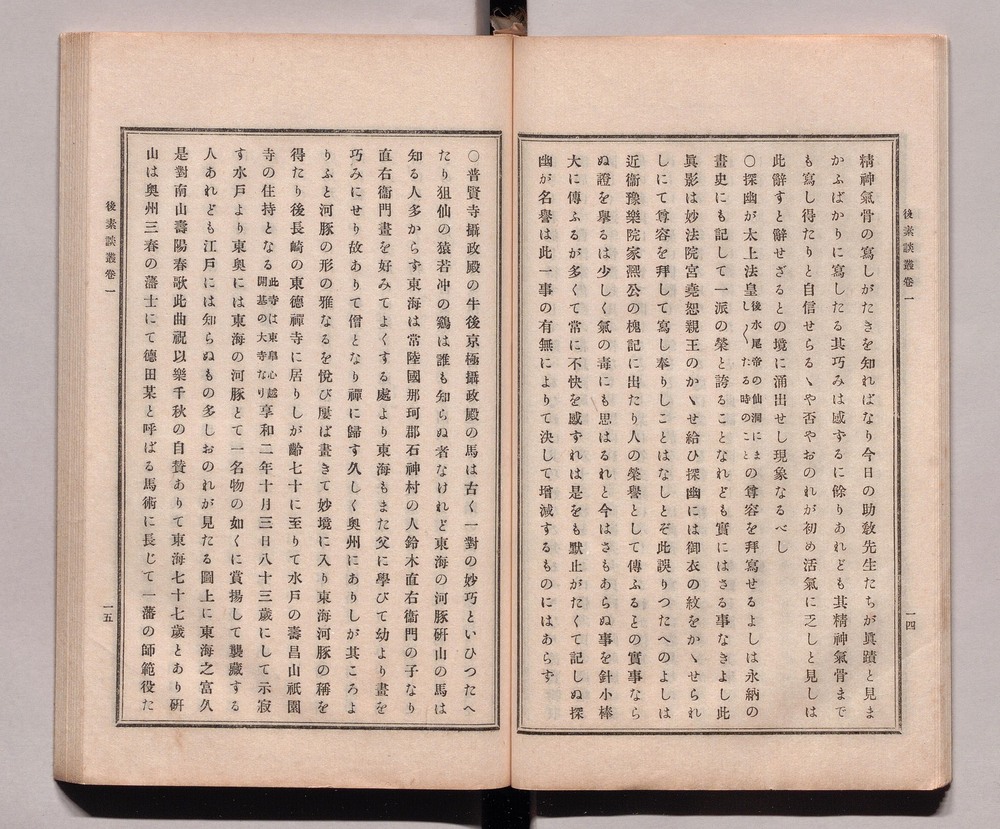 後素談叢卷一
一四
精神氣骨の寫しがたきを知ればなり今日の助敎先生たちが眞蹟と見ま
かふばかりに寫したる其巧みは感ずるに餘りあれども其精神氣骨まで
も寫し得たりと自信せらるゝや否やおのれが初め活氣に乏しと見しは
此辭すと辭せざるとの境に涌出せし現象なるべし
○探幽が太上法皇後水尾帝の仙洞にましく たる時のことの尊容を拜寫せるよしは永納の
畫史にも記して一派の榮と誇ることなれども實にはさる事なきよし此
眞影は妙法院宮堯恕親王のかゝせ給ひ探幽には御衣の紋をかゝせられ
しにて尊容を拜して寫し奉りしことはなしとぞ此誤りつたへのよしは
近衞豫樂院家凞公の槐記に出たり人の榮譽として傳ふるとの實事なら
ぬ證を擧るは少しく氣の毒にも思はるれと今はさもあらぬ事を針小棒
大に傳ふるが多くて常に不快を感ずれは是をも默止がたくて記しぬ探
幽が名譽は此一事の有無によりて決して增減するものにはあらず
○普賢寺攝政殿の牛後京極攝政殿の馬は古く一對の妙巧といひつたへ
たり狙仙の猿若冲の鷄は誰も知らぬ者なけれど東海の河豚硏山の馬は
知る人多からず東海は常陸國那珂郡石神村の人鈴木直右衞門の子なり
直右衞門畫を好みてよくする處より東海もまた父に學びて幼より畫を
巧みにせり故ありて僧となり禪に歸す久しく奧州にありしが其ころよ
りふと河豚の形の雅なるを悅び屢ば畫きて妙境に入り東海河豚の稱を
得たり後長崎の東德禪寺に居りしが齡七十に至りて水戶の壽昌山祇園
寺の住持となる此寺は東皐心越開基の大寺なり享和二年十月三日八十三歲にして示寂
す水戶より東奧には東海の河豚とて一名物の如くに賞揚して襲藏する
人あれども江戶には知らぬもの多しおのれが見たる圖上に東海之富久
是對南山壽陽春歌此曲祝以樂千秋の自賛ありて東海七十七歲とあり硏
山は奧州三春の藩士にて德田某と呼ばる馬術に長じて一藩の師範役た
後素談叢卷一
一五